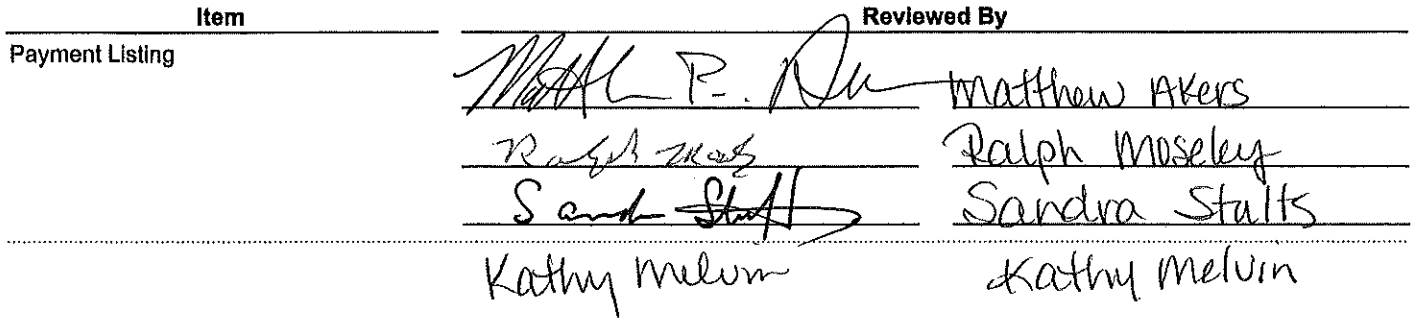 Item Reviewed By
Payment Listing
Matthew Akers
Ralph Moseley
Sandra Stults Sandra Stults
Kathy Melvin Kathy Melvin